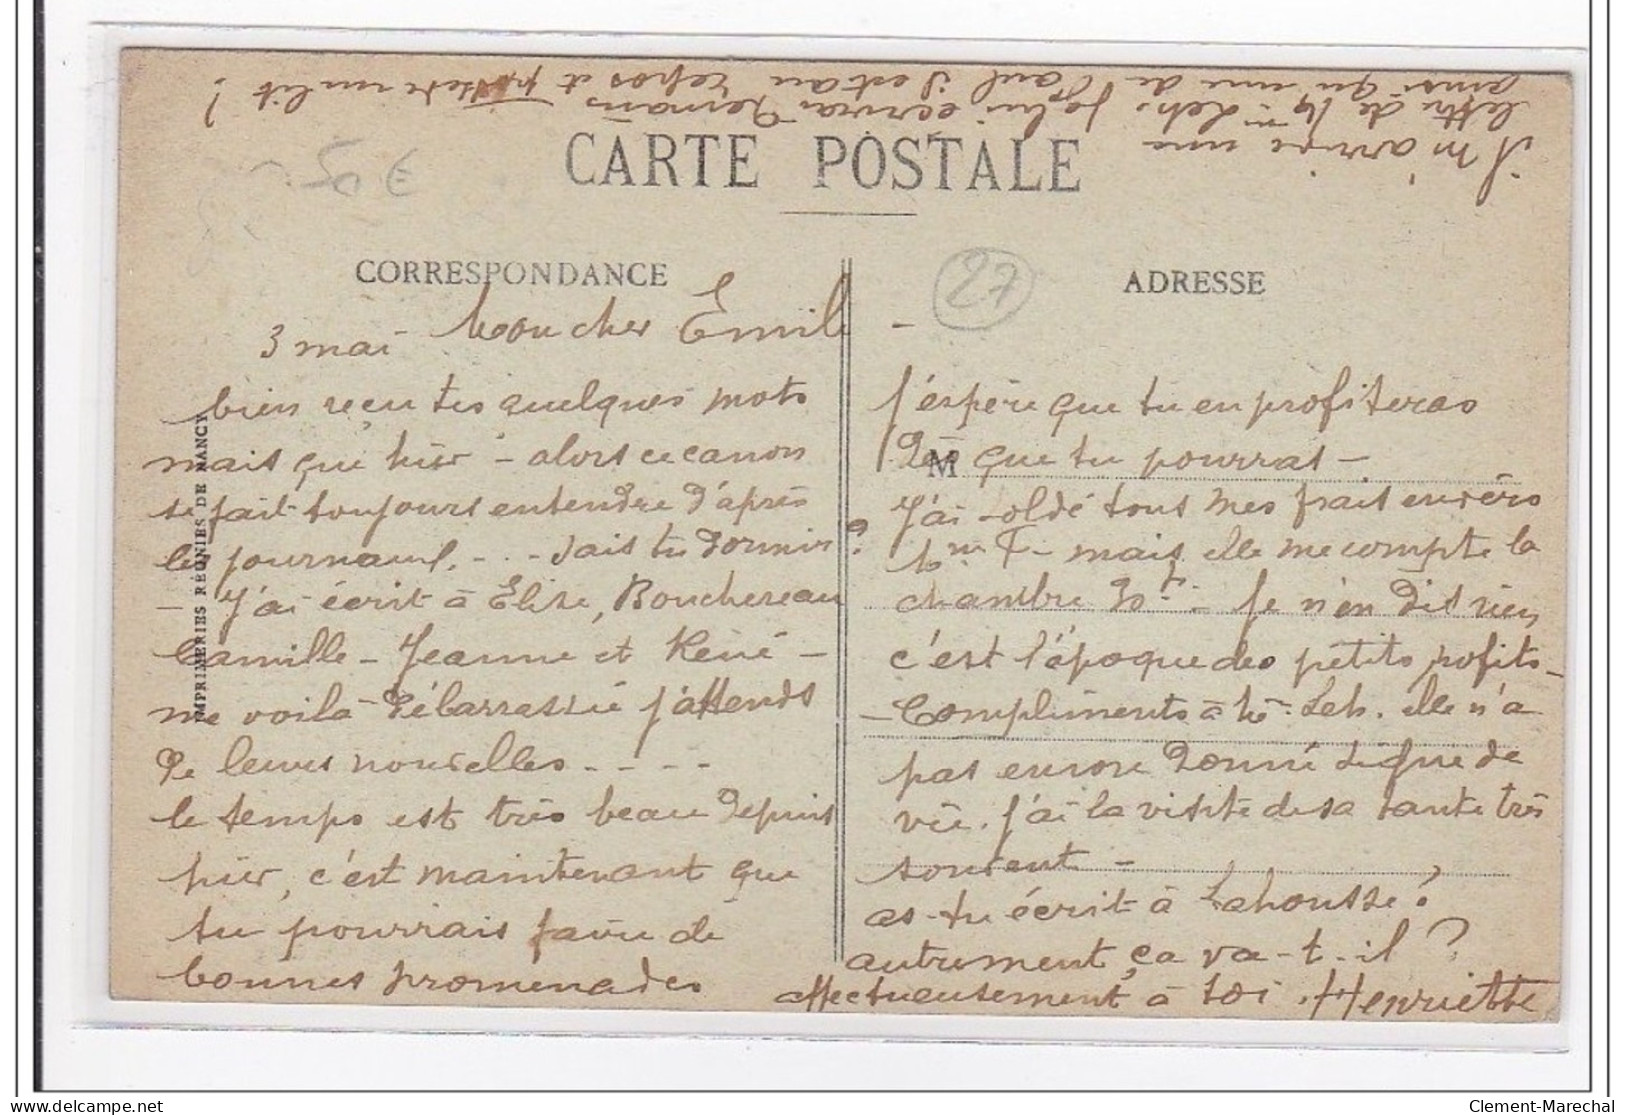 Il m'arrive une
lettre de Mme Leb. je lui écrirai Demain
ainsi qu'une de Paul il est au repos et possède un lit !
CARTE POSTALE
5€
27
CORRESPONDANCE
ADRESSE
IMPRIMERIES RÉUNIES DE NANCY
M
3 mai Mon cher Emile -
bien reçu tes quelques mots
mais que hier - alors ce canon
se fait toujours entendre d'après
les journaux. - - - sais tu Dormir ?
- J'ai écrit à Elise, Bouchereau
Camille - Jeanne et René -
me voilà Débarrassée j'attends
De leurs nouvelles - - - -
le temps est très beau Depuis
hier, c'est maintenant que
tu pourrais faire de
bonnes promenades
j'espère que tu en profiteras
Dès que tu pourras -
J'ai soldé tous mes frais envers
Mme F - mais elle me compte la
chambre - Je n'en Dis rien
c'est l'époque des petits profits -
- Compliments à Leb. elle n'a
pas encore Donné signe de
vie. j'ai la visite de sa tante très
souvent -
as-tu écrit à Lahousse ?
autrement ça va-t-il ?
affectueusement à toi . Henriette
Clement-Marechal